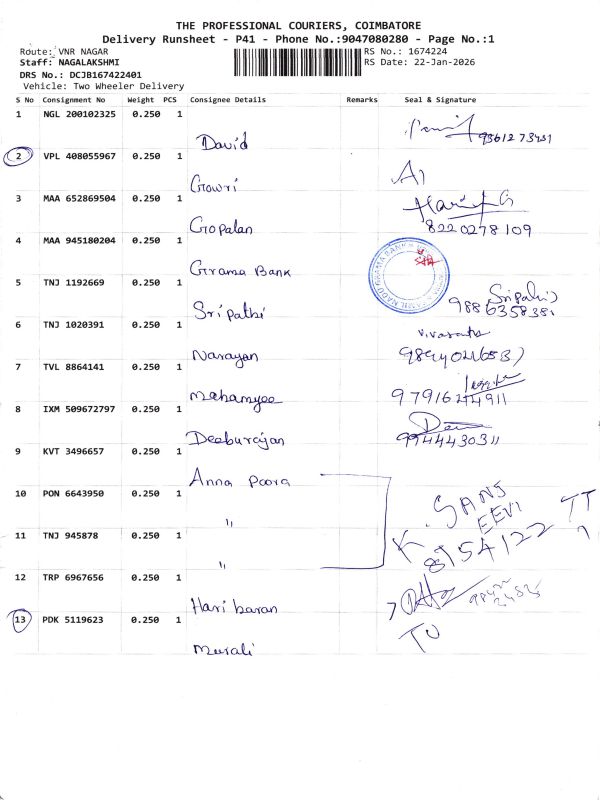 THE PROFESSIONAL COURIERS, COIMBATORE
Delivery Runsheet - P41 - Phone No.:9047080280 - Page No.:1
Route: VNR NAGAR RS No.: 1674224
Staff: NAGALAKSHMI RS Date: 22-Jan-2026
DRS No.: DCJB167422401
Vehicle: Two Wheeler Delivery
S No Consignment No Weight PCS Consignee Details Remarks Seal & Signature
1 NGL 200102325 0.250 1
David
2 VPL 408055967 0.250 1
Gowri
3 MAA 652869504 0.250 1
Gopalan 8220278109
4 MAA 945180204 0.250 1
Grama Bank
5 TNJ 1192669 0.250 1
Sripathi 9886358381
6 TNJ 1020391 0.250 1
Narayan
7 TVL 8864141 0.250 1
Mahamyee
8 IXM 509672797 0.250 1
Deeburajan 9944430311
9 KVT 3496657 0.250 1
Anna Poora
10 PON 6643950 0.250 1
"
K. SANJ
EEVI
11 TNJ 945878 0.250 1
"
12 TRP 6967656 0.250 1
Hari baran
13 PDK 5119623 0.250 1
Murali